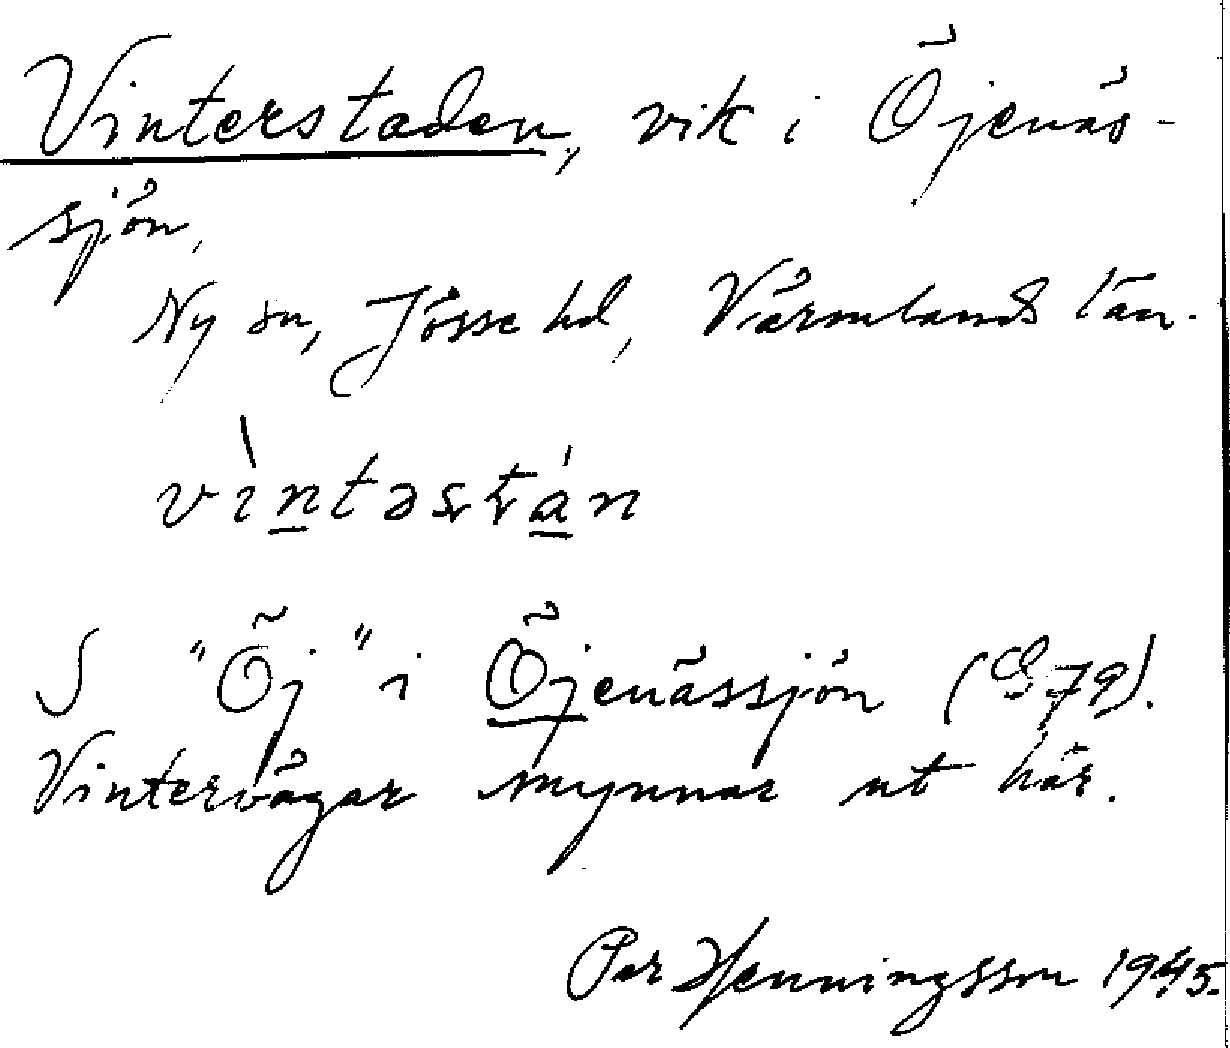 Vinterstaden, vik i Öjenäs-
sjön,
Ny sn, Jösse hd, Värmlands län.
vìntəstán
S "Öj" i Öjenässjön (G79).
Vintervägar mynnar ut här.
Per Henningsson 1945.